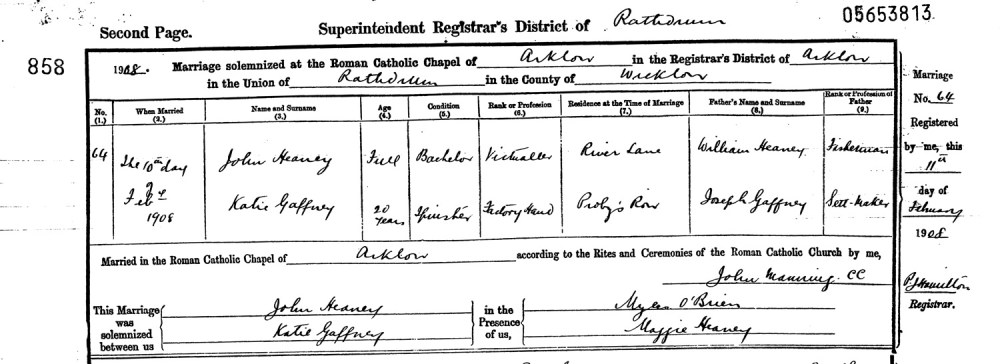 Second Page.
Superintendent Registrar's District of Rathdrum
05653813
858
1908. Marriage solemnized at the Roman Catholic Chapel of Arklow in the Registrar's District of Arklow
in the Union of Rathdrum in the County of Wicklow
No. (1.) When Married (2.) Name and Surname (3.) Age (4.) Condition (5.) Rank or Profession (6.) Residence at the Time of Marriage (7.) Father's Name and Surname (8.) Rank or Profession of Father (9.)
64 The 10th day John Heaney Full Bachelor Victualler River Lane William Heaney Fisherman
of Feby 1908 Katie Gaffney 20 Years Spinster Factory Hand Proby's Row Joseph Gaffney Sett-Maker
Married in the Roman Catholic Chapel of Arklow according to the Rites and Ceremonies of the Roman Catholic Church by me,
John Manning CC
This Marriage was solemnized between us
John Heaney
Katie Gaffney
in the Presence of us,
Myles O'Brien
Maggie Heaney
Marriage
No. 64
Registered
by me, this
11th
day of
February
1908.
PJ Hamilton
Registrar.